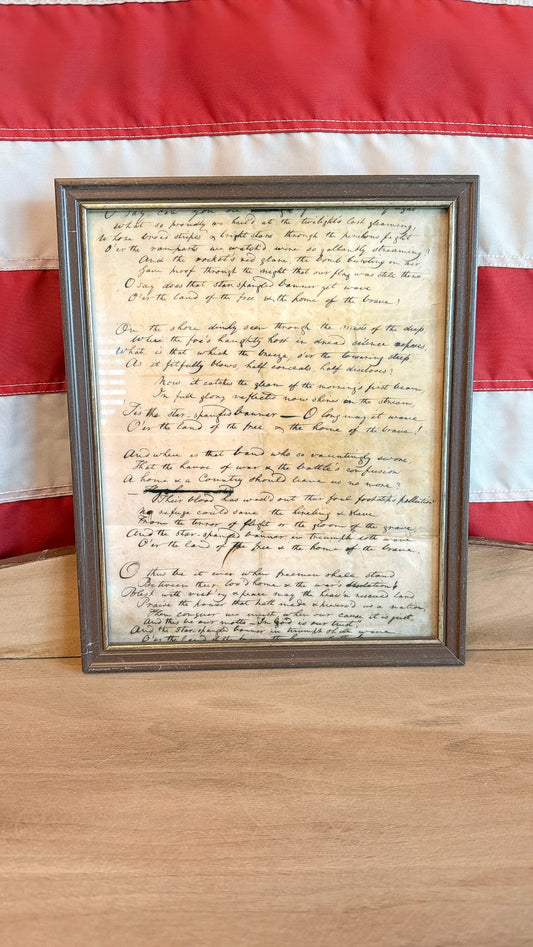 O say can you
What so proudly we hail'd at the twilight's last gleaming,
Whose broad stripes & bright stars through the perilous fight
O'er the ramparts we watch'd, were so gallantly streaming?
And the rocket's red glare, the bomb bursting in air,
Gave proof through the night that our flag was still there,
O say does that star-spangled banner yet wave
O'er the land of the free & the home of the brave?
On the shore dimly seen through the mists of the deep,
Where the foe's haughty host in dread silence reposes,
What is that which the breeze, o'er the towering steep,
As it fitfully blows, half conceals, half discloses?
Now it catches the gleam of the morning's first beam,
In full glory reflected now shines in the stream,
'Tis the star-spangled banner — O long may it wave
O'er the land of the free & the home of the brave!
And where is that band who so vauntingly swore,
That the havoc of war & the battle's confusion
A home & a Country should leave us no more?
— Their blood has wash'd out their foul footstep's pollution
No refuge could save the hireling & slave
From the terror of flight or the gloom of the grave,
And the star-spangled banner in triumph doth wave
O'er the land of the free & the home of the brave.
O thus be it ever when freemen shall stand
Between their lov'd home & the war's desolation!
Blest with vict'ry & peace may the heav'n rescued land
Praise the power that hath made & preserv'd us a nation!
Then conquer we must, when our cause it is just,
And this be our motto - "In God is our trust,"
And the star-spangled banner in triumph shall wave
O'er the land of the free & the home